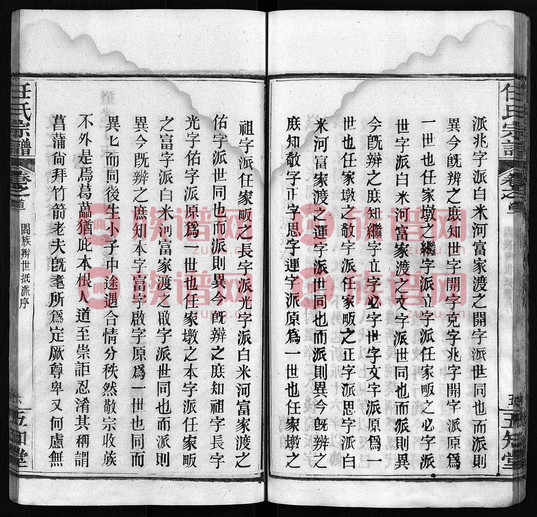 任氏宗譜
卷之首
五知堂
派兆字派白米河富家渡之開字派世同也而派則
異今旣辨之庶知世字開字克字兆字開字派原爲
一世也任家墩之繼字派立字派任家畈之必字派
世字派白米河富家渡之文字派世同也而派則異
今旣辨之庶知繼字立字必字世字文字派原爲一
世也任家墩之敬字派任家畈之正字派思字派白
米河富家渡之運字派世同也而派則異今旣辨之
庶知敬字正字思字運字派原爲一世也任家墩之
祖字派任家畈之長字派光字派白米河富家渡之
佑字派世同也而派則異今旣辨之庶知祖字長字
光字佑字派原爲一世也任家墩之本字派任家畈
之富字派白米河富家渡之啟字派世同也而派則
異今旣辨之庶知本字富字啟字原爲一世也同而
異異而同後生小子中途遇合情分秩然敬宗收族
不外是焉葛藟猶此本根人道至崇詎忍淆其稱謂
菖蒲尙拜竹箭老夫旣耄所爲定厥尊卑又何慮無
任氏宗譜
卷之首
闔族辨世派序
五知堂
族谱网
族谱网
族谱网
族谱网